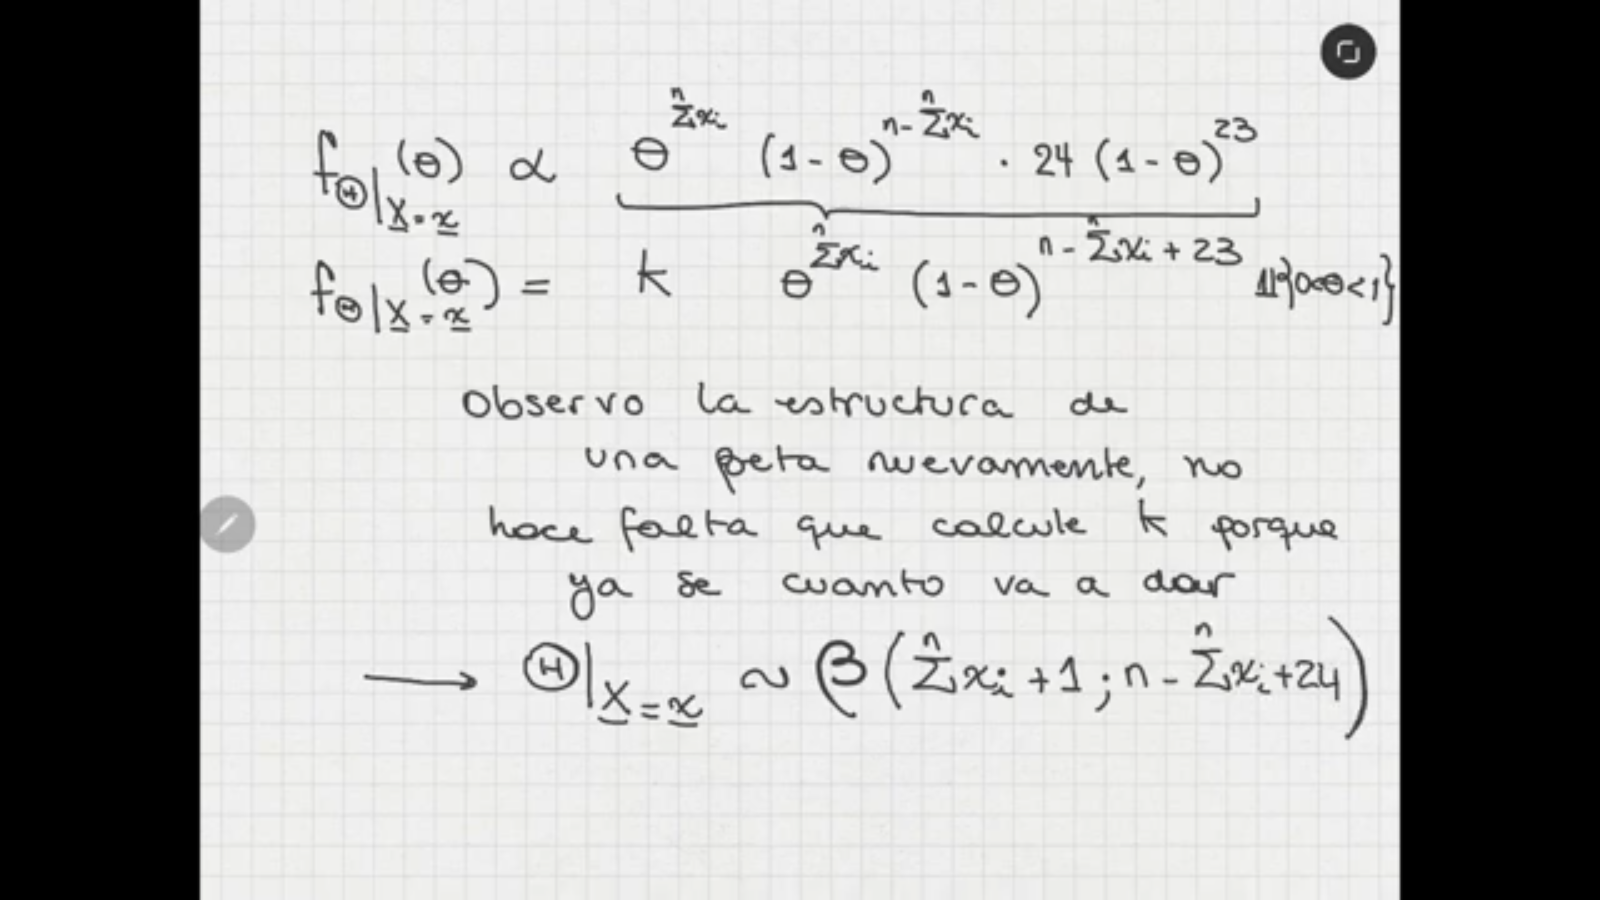 f_Θ|X̲=x̲ (θ) α θ^{Σ^n xi} (1-θ)^{n-Σ^n xi} · 24 (1-θ)^{23}
f_Θ|X̲=x̲ (θ) = k θ^{Σ^n xi} (1-θ)^{n-Σ^n xi + 23} 𝟙{0<θ<1}
Observo la estructura de
una βeta nuevamente, no
hace falta que calcule k porque
ya se cuanto va a dar
→ Θ|X̲=x̲ ~ β(Σ^n xi +1; n-Σ^n xi+24)